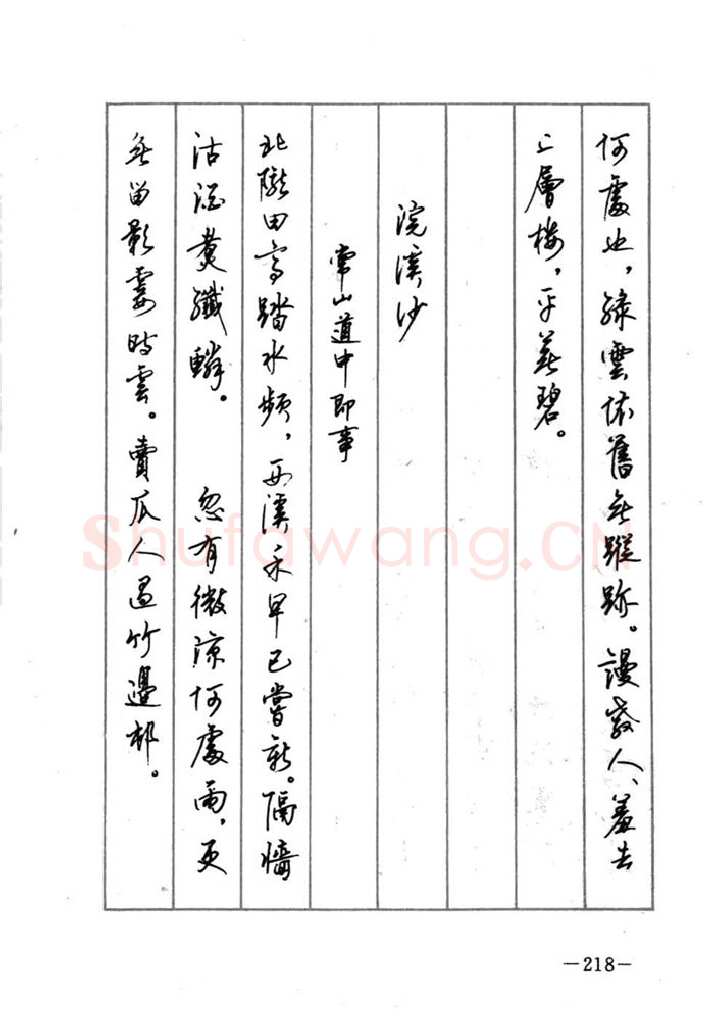 何處也，緑雲依舊無蹤跡。謾教人、羞去
上層樓，平蕪碧。
浣溪沙
常山道中即事
北隴田高踏水頻，西溪禾早已嘗新。隔牆
沽酒煮纖鱗。　忽有微涼何處雨，更
無留影霎時雲。賣瓜人過竹邊村。
Shufawang.CN
—218—